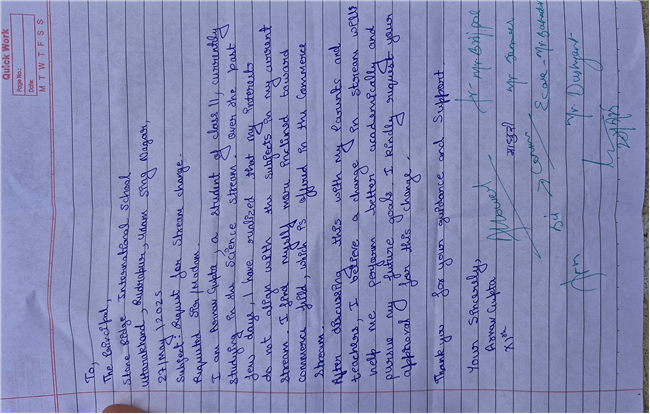 Quick Work
Page No.:
Date:
M T W T F S S
To,
The Principal,
Stone Ridge International School
Uttarakhand, Rudrapur, Udam Sing Nagar,
27/May/2025
Subject: Request for Stream change.
Requsted Sir/Madam.
I am Arnav Gupta, a student of class 11, currently
studying in the Science stream. Over the past
few days, I have realized that my interests
do not align with the subjects in my current
stream I find myself more inclined toward
commerce field, which is offered in the Commerce
Stream
After discussing this with my Parents and
teachers, I believe a change in stream will
help me perform better academically and
pursue my future goals I kindly request your
approval for this change.
Thank you for your guidance and Support
Your Sincerely,
Arnav Gupta
XIth
Allowed